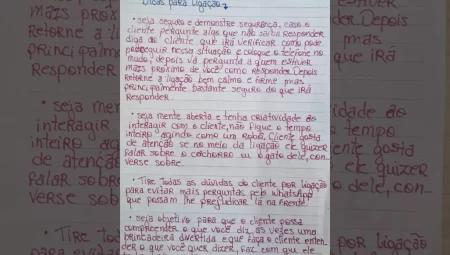 Dicas para Ligação
• seja seguro e demonstre segurança, caso o
cliente pergunte algo que não saiba responder
diga ao cliente que irá verificar como pode
prosseguir nessa situação e coloque o telefone no
mudo, depois vá pergunta a quem estiver
mais próximo de você como responder. Depois
retorne a ligação bem calmo e firme mas
principalmente bastante seguro do que irá
Responder.
• seja mente aberta e tenha criatividade ao
interagir com o cliente, não fique o tempo
inteiro agindo como um Robô, cliente gosta
de atenção se no meio da ligação ele quizer
falar sobre o cachorro ou o gato dele, con-
verse sobre.
• Tire todas as dúvidas do cliente por ligação
para evitar mais perguntas pelo WhatsApp
que possam lhe prejudicar lá na frente.
• seja objetivo para que o cliente possa
compreender o que você diz, as vezes uma
brincadeira divertida e que faça o cliente enten-
der o que você quer dizer, faz com que ele